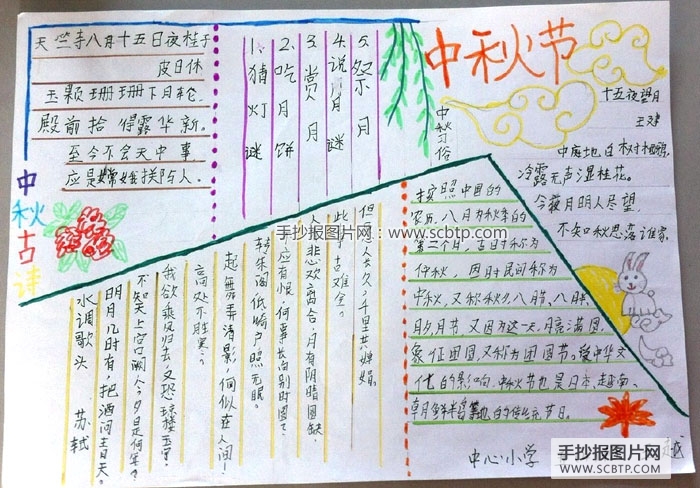 中秋节
天竺寺八月十五日夜桂子
皮日休
玉颗珊珊下月轮,
殿前拾得露华新。
至今不会天中事
应是嫦娥掷与人。
中秋古诗
1.猜灯谜
2.吃月饼
3.赏月
4.说月谜
5.祭月
中秋习俗
十五夜望月
王建
中庭地白树栖鸦,
冷露无声湿桂花。
今夜月明人尽望,
不知秋思落谁家。
水调歌头 苏轼
明月几时有,把酒问青天。
不知天上宫阙人?今夕是何年?
我欲乘风归去,又恐琼楼玉宇,
高处不胜寒,
起舞弄清影,何似在人间!
转朱阁,低绮户,照无眠。
应有恨,何事长向别时圆?
人悲欢离合,月有阴晴圆缺,
此事古难全。
但愿人长久,千里共婵娟。
按照中国的
农历,八月为秋季的
第二个月,古时称为
仲秋,因时民间称为
中秋,又称秋夕,八月腊,八月半,
月夕,月节,又因为这一天月亮满圆,
象征团圆,又称为团圆节。受中华文
化的影响,中秋节也是日本、越南、
朝鲜等地的传统节日。
中心小学
手抄报图片网
www.scbtp.com
手抄报图片网
WWW.SCBTP.COM